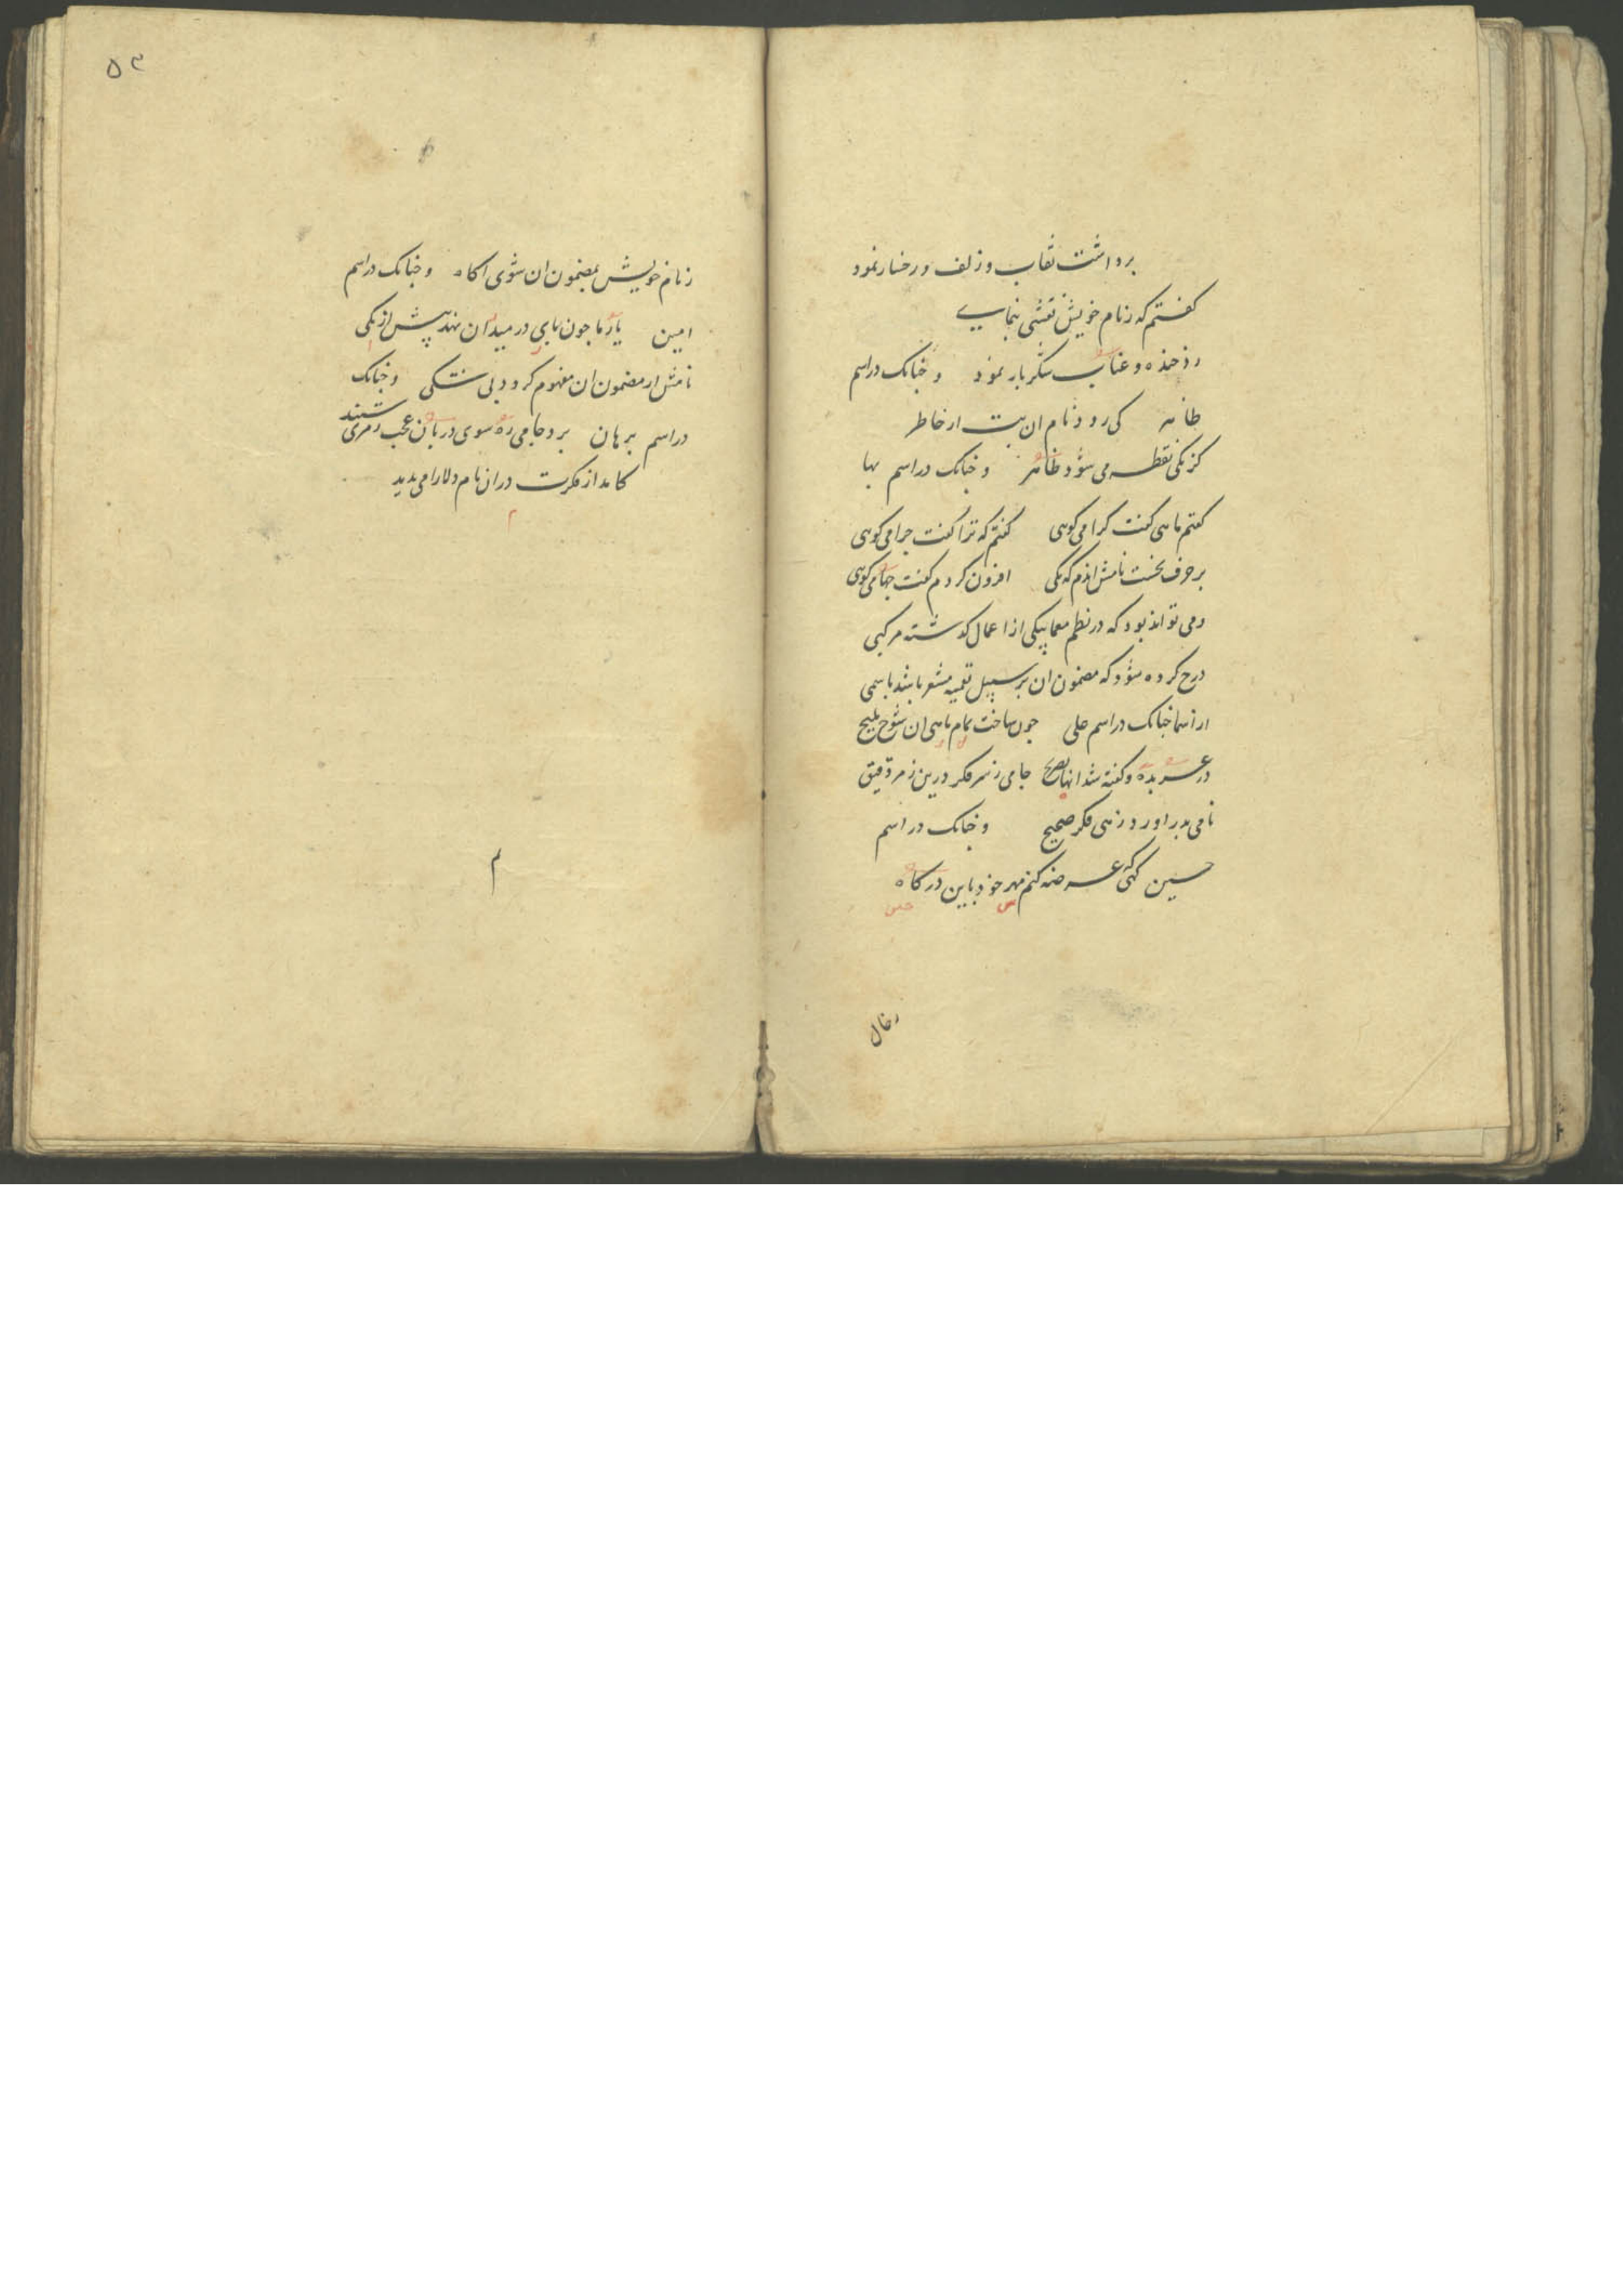 برداشت نقاب و زلف و رخسار نمود
کفتم که زنام خویش نقشی بنمایی
در خنده و عناب شکر بار نمود و چنانک در اسم
طاهر کی رود نام ان بت از خاطر
کز یکی نقطه می شود ظاهر و چنانک در اسم بها
کفتم ماهی کفت کرا می کوهی کفتم که ترا کفت چرا می کوهی
بر حرف نخست نامش از دم که یکی افزون کردم کفت بها می کوهی
و می تواند بود که در نظم معما بیکی از اعمال کذشته مرکبی
درج کرده شود که مضمون ان بر سبیل تعمیه مشعر باشد باسمی
از اسما چنانک در اسم علی چون ساخت تمام ماهی ان شوخ ملیح
در عربده و کفته شد انها بصریح جامی ز سر فکر درین رمز دقیق
نامی بدر اورد زهی فکر صحیح و چنانک در اسم
حسین کهی عرضه کنم مهر خود باین درکاه
حس
ز نام خویش بمضمون ان شوی اکاه و چنانک در اسم
امین یار ما چون پای در میدان نهد پیش از یکی
نامش از مضمون ان مفهوم کردد بی شکی و چنانک
در اسم برهان برد جامی ره سوی دربان عجب رمزی شنید
کامد از فکرت در ان نام دلارامی پدید
م
م
۵۳